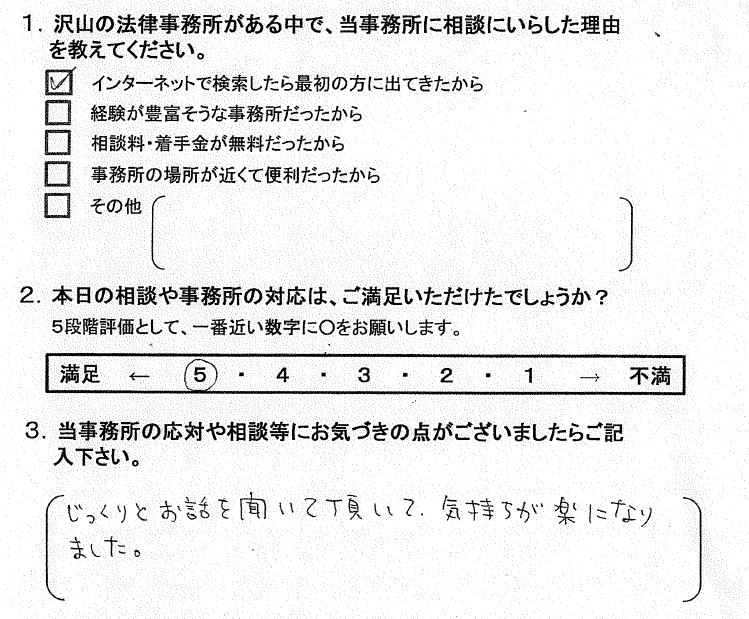 1. 沢山の法律事務所がある中で、当事務所に相談にいらした理由
を教えてください。
☑ インターネットで検索したら最初の方に出てきたから
□ 経験が豊富そうな事務所だったから
□ 相談料・着手金が無料だったから
□ 事務所の場所が近くて便利だったから
□ その他
2. 本日の相談や事務所の対応は、ご満足いただけたでしょうか?
5段階評価として、一番近い数字に○をお願いします。
満足 ← 5 ・ 4 ・ 3 ・ 2 ・ 1 → 不満
3. 当事務所の応対や相談等にお気づきの点がございましたらご記
入下さい。
じっくりとお話を聞いて頂いて、気持ちが楽になり
ました。